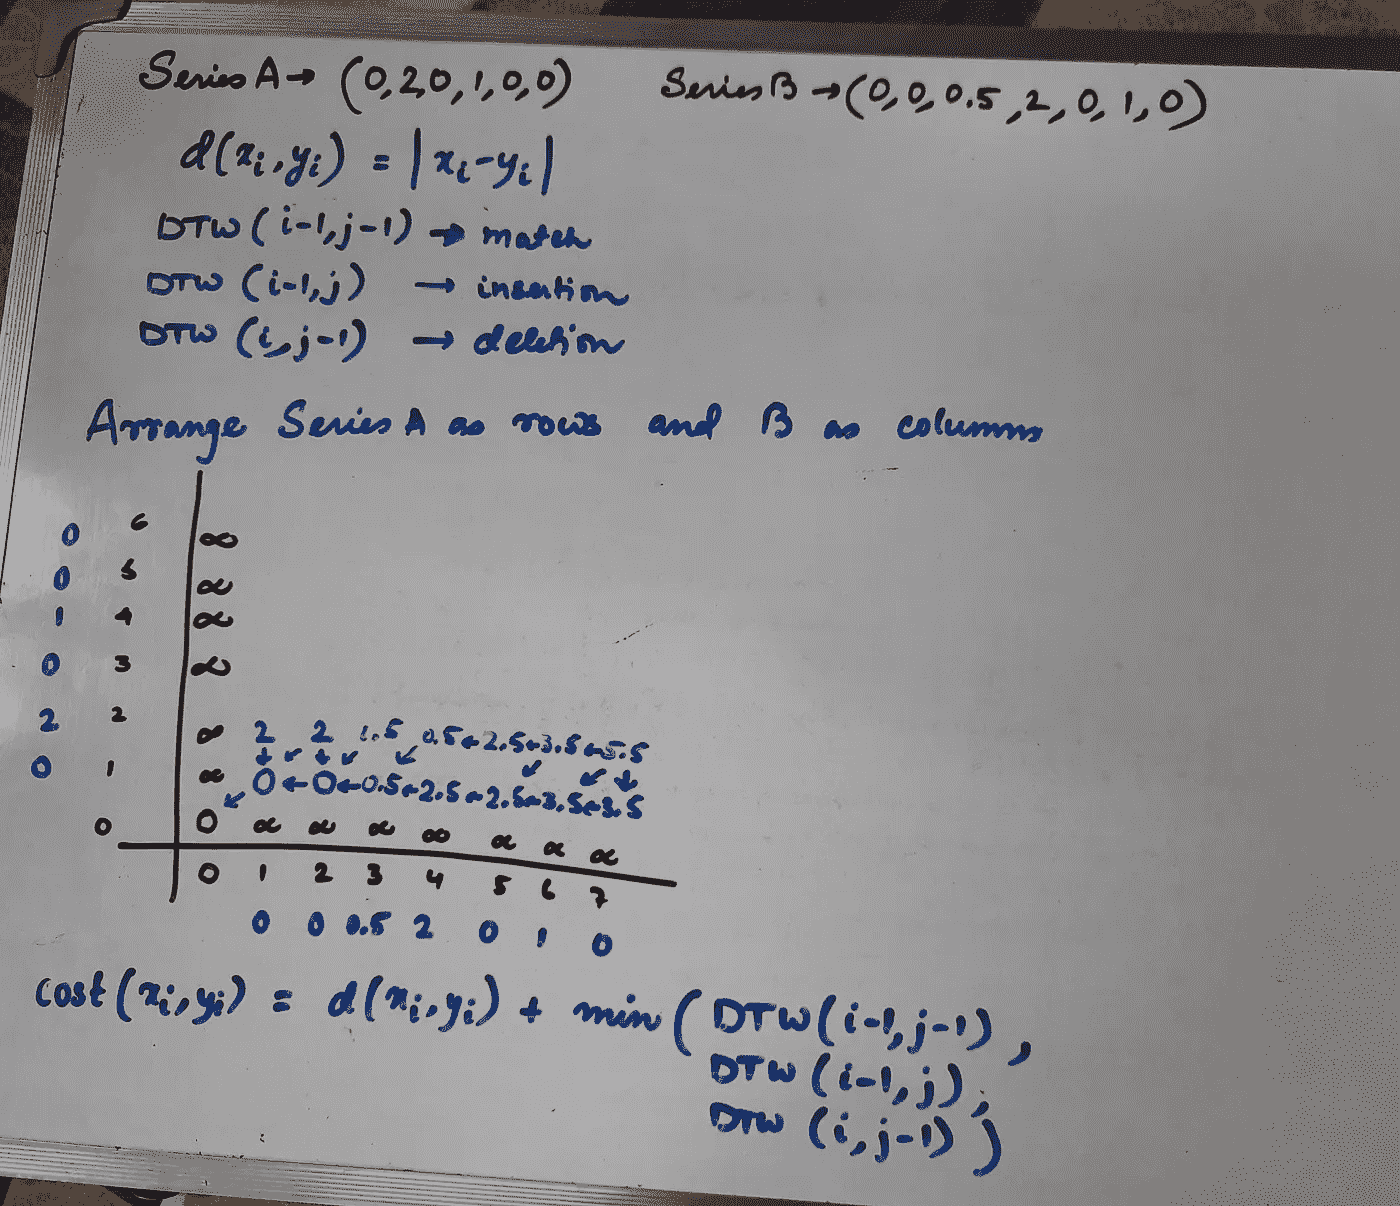 Series A → (0,2,0,1,0,0) Series B → (0,0,0.5,2,0,1,0)
d(xi,yi) = |xi-yi|
DTW (i-1,j-1) → match
DTW (i-1,j) → insertion
DTW (i,j-1) → deletion
Arrange Series A as rows and B as columns
0 6 ∞
0 5 ∞
1 4 ∞
0 3 ∞
2 2 ∞ 2 2 1.5 0.5←2.5←3.5←5.5
↓ ↙ ↓ ↙ ↙ ↙ ↙ ↓
0 1 ∞ 0←0←0.5←2.5←2.5←3.5←3.5
↙
0 0 ∞ ∞ ∞ ∞ ∞ ∞ ∞
0 1 2 3 4 5 6 7
0 0 0.5 2 0 1 0
cost(xi,yi) = d(xi,yi) + min(DTW(i-1,j-1),
DTW (i-1,j),
DTW (i,j-1))